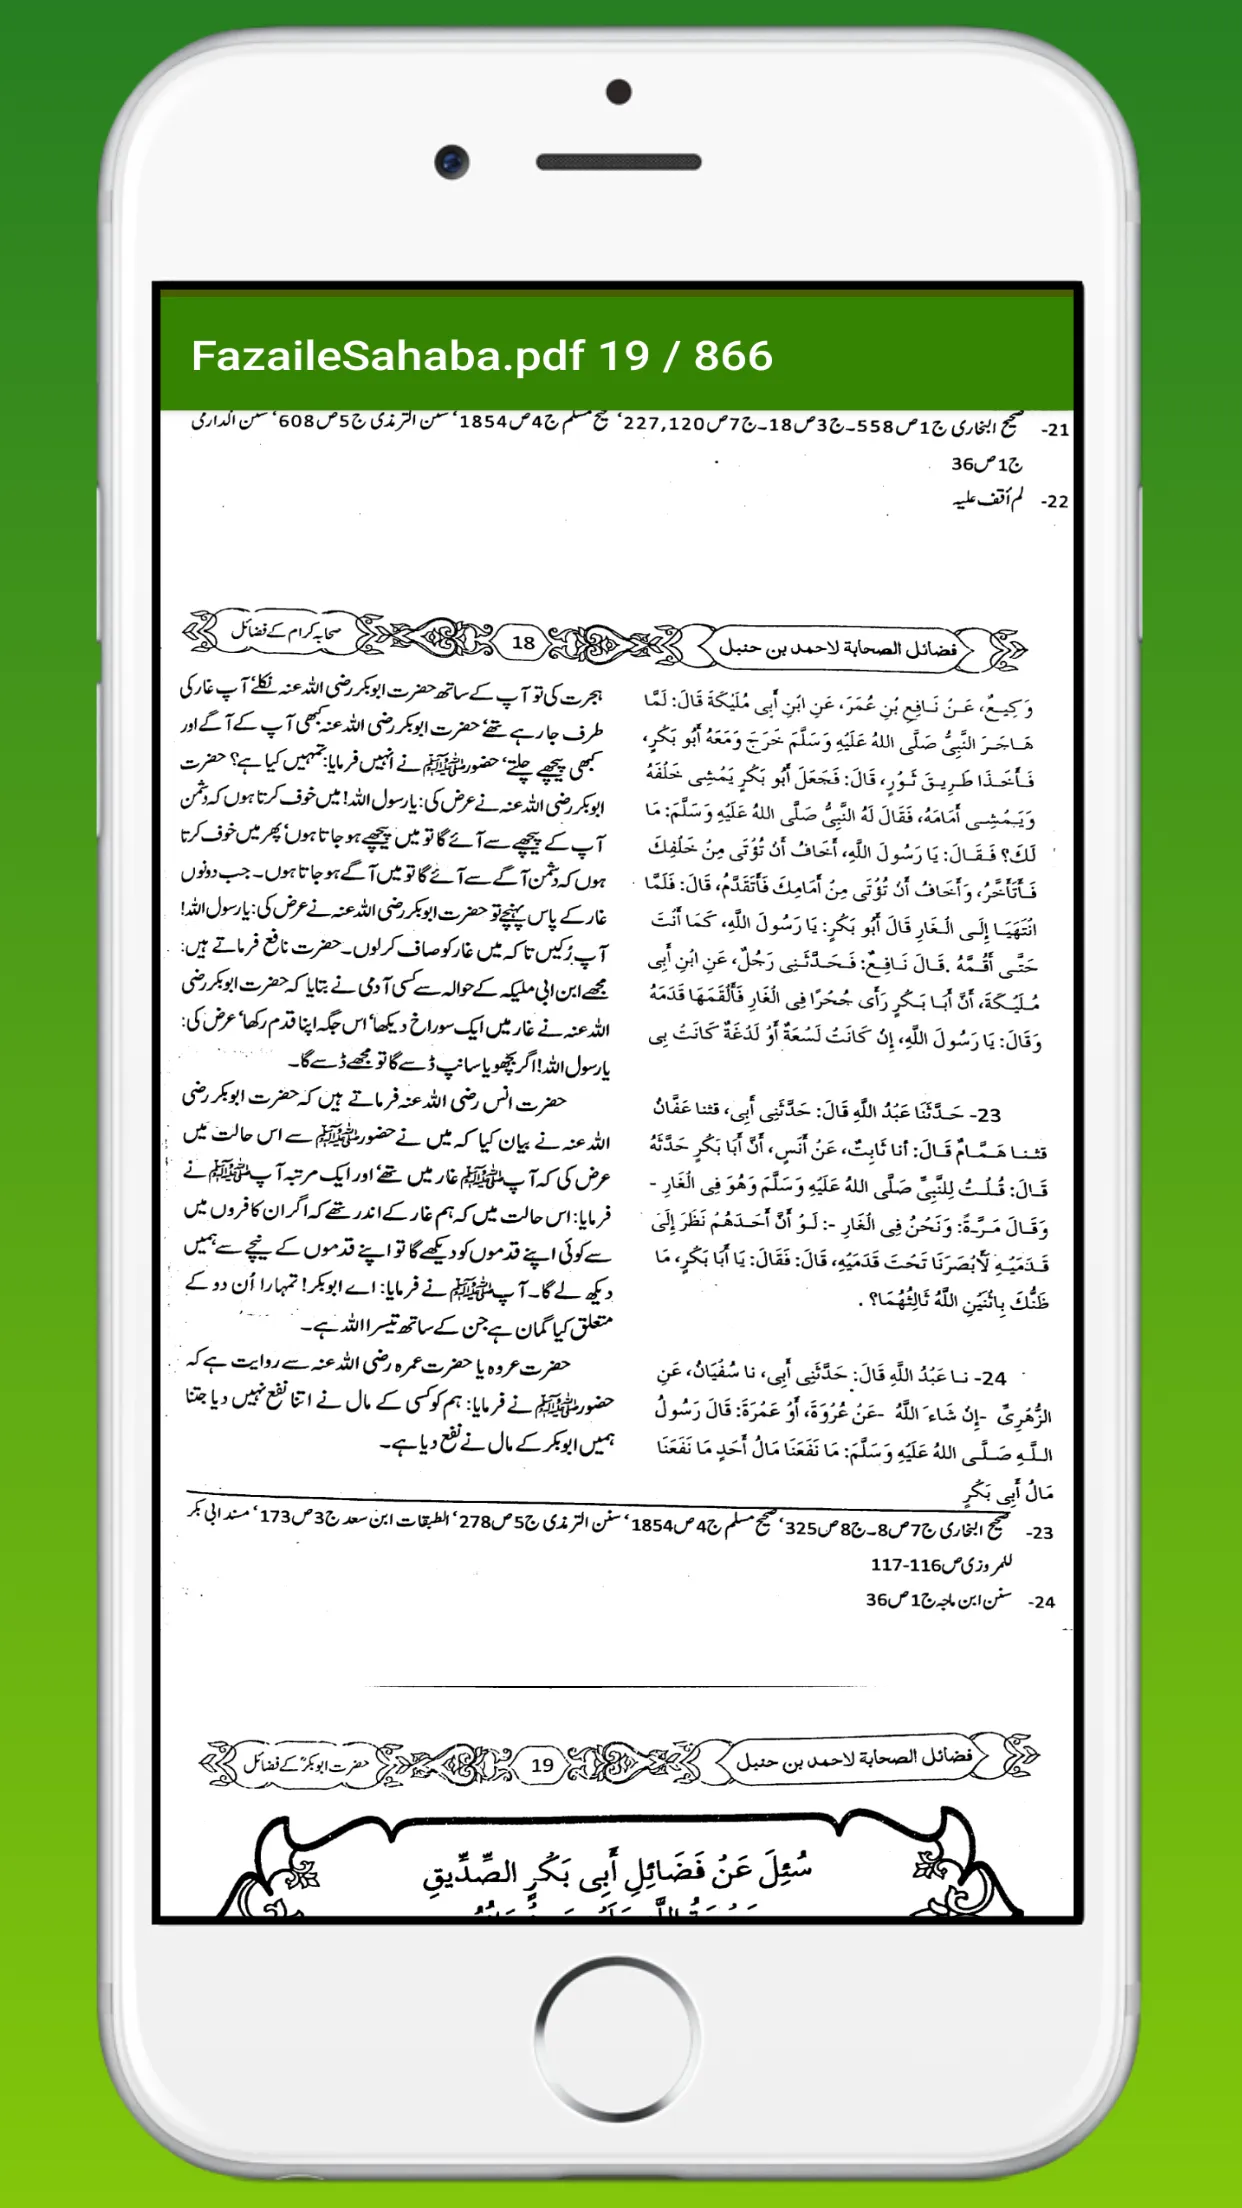 FazaileSahaba.pdf 19 / 866
21- صحیح البخاری ج1ص558۔ج3ص18۔ج7ص227,120‘ صحیح مسلم ج4ص1854‘ سنن الترمذی ج5ص608‘ سنن الدارمی
ج1ص36
22- لم أقف علیہ
فضائل الصحابة لاحمد بن حنبل 18 صحابہ کرام کے فضائل
وَكِيعٌ، عَنْ نَافِعِ بْنِ عُمَرَ، عَنِ ابْنِ أَبِي مُلَيْكَةَ قَالَ: لَمَّا
هَاجَرَ النَّبِيُّ صَلَّى اللهُ عَلَيْهِ وَسَلَّمَ خَرَجَ وَمَعَهُ أَبُو بَكْرٍ،
فَأَخَذَا طَرِيقَ ثَوْرٍ، قَالَ: فَجَعَلَ أَبُو بَكْرٍ يَمْشِي خَلْفَهُ
وَيَمْشِي أَمَامَهُ، فَقَالَ لَهُ النَّبِيُّ صَلَّى اللهُ عَلَيْهِ وَسَلَّمَ: مَا
لَكَ؟ فَقَالَ: يَا رَسُولَ اللَّهِ، أَخَافُ أَنْ تُؤْتَى مِنْ خَلْفِكَ
فَأَتَأَخَّرُ، وَأَخَافُ أَنْ تُؤْتَى مِنْ أَمَامِكَ فَأَتَقَدَّمُ، قَالَ: فَلَمَّا
انْتَهَيَا إِلَى الْغَارِ قَالَ أَبُو بَكْرٍ: يَا رَسُولَ اللَّهِ، كَمَا أَنْتَ
حَتَّى أَقُمَّهُ .قَالَ نَافِعٌ: فَحَدَّثَنِي رَجُلٌ، عَنِ ابْنِ أَبِي
مُلَيْكَةَ، أَنَّ أَبَا بَكْرٍ رَأَى جُحْرًا فِي الْغَارِ فَأَلْقَمَهَا قَدَمَهُ
وَقَالَ: يَا رَسُولَ اللَّهِ، إِنْ كَانَتْ لَسْعَةٌ أَوْ لَدْغَةٌ كَانَتْ بِي
23- حَدَّثَنَا عَبْدُ اللَّهِ قَالَ: حَدَّثَنِي أَبِي، قثنا عَفَّانُ
قثنا هَمَّامٌ قَالَ: أنا ثَابِتٌ، عَنْ أَنَسٍ، أَنَّ أَبَا بَكْرٍ حَدَّثَهُ
قَالَ: قُلْتُ لِلنَّبِيِّ صَلَّى اللهُ عَلَيْهِ وَسَلَّمَ وَهُوَ فِي الْغَارِ -
وَقَالَ مَرَّةً: وَنَحْنُ فِي الْغَارِ -: لَوْ أَنَّ أَحَدَهُمْ نَظَرَ إِلَى
قَدَمَيْهِ لَأَبْصَرَنَا تَحْتَ قَدَمَيْهِ، قَالَ: فَقَالَ: يَا أَبَا بَكْرٍ، مَا
ظَنُّكَ بِاثْنَيْنِ اللَّهُ ثَالِثُهُمَا؟ .
24- نا عَبْدُ اللَّهِ قَالَ: حَدَّثَنِي أَبِي، نا سُفْيَانُ، عَنِ
الزُّهْرِيِّ -إِنْ شَاءَ اللَّهُ -عَنْ عُرْوَةَ، أَوْ عَمْرَةَ: قَالَ رَسُولُ
اللَّهِ صَلَّى اللهُ عَلَيْهِ وَسَلَّمَ: مَا نَفَعَنَا مَالُ أَحَدٍ مَا نَفَعَنَا
مَالُ أَبِي بَكْرٍ
ہجرت کی تو آپ کے ساتھ حضرت ابوبکر رضی اللہ عنہ نکلے‘ آپ غار کی
طرف جا رہے تھے‘ حضرت ابوبکر رضی اللہ عنہ کبھی آپ کے آگے اور
کبھی پیچھے چلتے‘ حضور ﷺ نے انہیں فرمایا: تمہیں کیا ہے؟ حضرت
ابوبکر رضی اللہ عنہ نے عرض کی: یارسول اللہ! میں خوف کرتا ہوں کہ دشمن
آپ کے پیچھے سے آئے گا تو میں پیچھے ہو جاتا ہوں‘ پھر میں خوف کرتا
ہوں کہ دشمن آگے سے آئے گا تو میں آگے ہو جاتا ہوں۔ جب دونوں
غار کے پاس پہنچے تو حضرت ابوبکر رضی اللہ عنہ نے عرض کی: یارسول اللہ!
آپ رُکیں تا کہ میں غار کو صاف کر لوں۔ حضرت نافع فرماتے ہیں:
مجھے ابن ابی ملیکہ کے حوالہ سے کسی آدمی نے بتایا کہ حضرت ابوبکر رضی
اللہ عنہ نے غار میں ایک سوراخ دیکھا‘ اس جگہ اپنا قدم رکھا‘ عرض کی:
یارسول اللہ! اگر بچھو یا سانپ ڈسے گا تو مجھے ڈسے گا۔
حضرت انس رضی اللہ عنہ فرماتے ہیں کہ حضرت ابوبکر رضی
اللہ عنہ نے بیان کیا کہ میں نے حضور ﷺ سے اس حالت میں
عرض کی کہ آپ ﷺ غار میں تھے‘ اور ایک مرتبہ آپ ﷺ نے
فرمایا: اس حالت میں کہ ہم غار کے اندر تھے کہ اگر ان کافروں میں
سے کوئی اپنے قدموں کو دیکھے گا تو اپنے قدموں کے نیچے سے ہمیں
دیکھ لے گا۔ آپ ﷺ نے فرمایا: اے ابوبکر! تمہارا اُن دو کے
متعلق کیا گمان ہے جن کے ساتھ تیسرا اللہ ہے۔
حضرت عروہ یا حضرت عمرہ رضی اللہ عنہ سے روایت ہے کہ
حضور ﷺ نے فرمایا: ہم کو کسی کے مال نے اتنا نفع نہیں دیا جتنا
ہمیں ابوبکر کے مال نے نفع دیا ہے۔
23- صحیح البخاری ج7ص8۔ج8ص325‘ صحیح مسلم ج4ص1854‘ سنن الترمذی ج5ص278‘ الطبقات ابن سعد ج3ص173‘ مسند ابی بکر
للمروزی ص116-117
24- سنن ابن ماجہ ج1ص36
فضائل الصحابة لاحمد بن حنبل 19 حضرت ابوبکرؓ کے فضائل
سُئِلَ عَنْ فَضَائِلِ أَبِي بَكْرٍ الصِّدِّيقِ